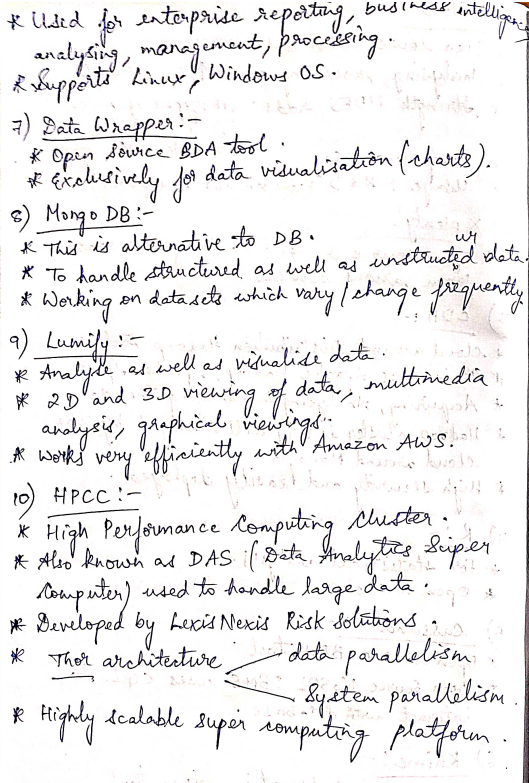 * Used for enterprise reporting, business intelligence
analysing, management, processing.
* Supports Linux, Windows OS.
7) Data Wrapper:-
* Open source BDA tool.
* Exclusively for data visualisation (charts).
8) Mongo DB:-
* This is alternative to DB.
* To handle structured as well as unstructured data.
* Working on datasets which vary / change frequently
9) Lumify:-
* Analyse as well as visualise data.
* 2D and 3D viewing of data, multimedia
analysis, graphical viewings.
* Works very efficiently with Amazon AWS.
10) HPCC:-
* High Performance Computing Cluster.
* Also known as DAS (Data Analytics Super
Computer) used to handle large data.
* Developed by Lexis Nexis Risk solutions.
* Thor architecture data parallelism.
System parallelism.
* Highly scalable super computing platform.